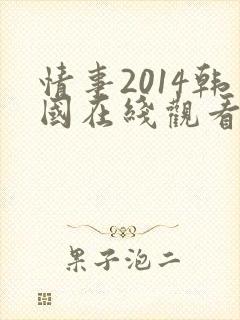 情事2014韩
國在綫觀看
果子泡二